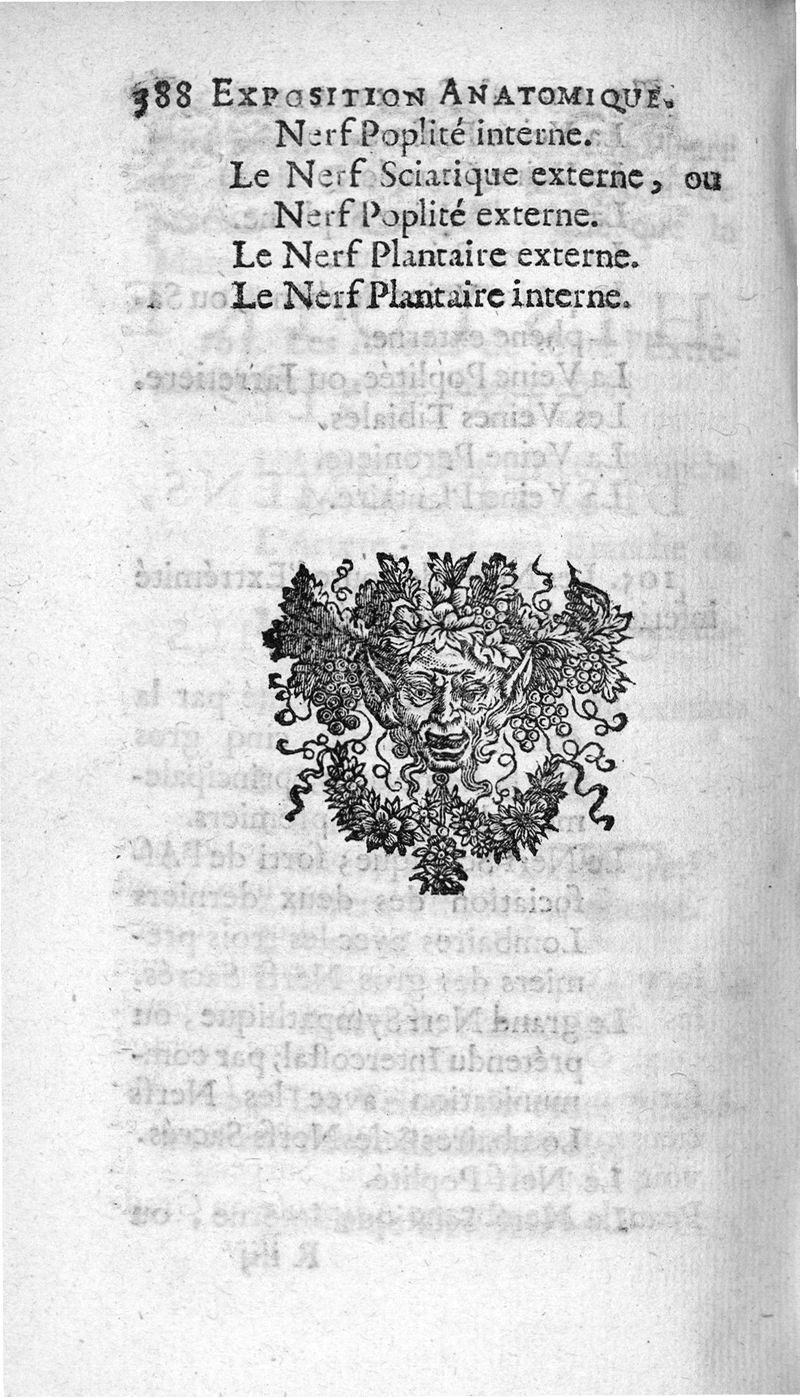 388 EXPOSITION ANATOMIQUE.
Nerf Poplité interne.
Le Nerf Sciatique externe, ou
Nerf Poplité externe.
Le Nerf Plantaire externe.
Le Nerf Plantaire interne.